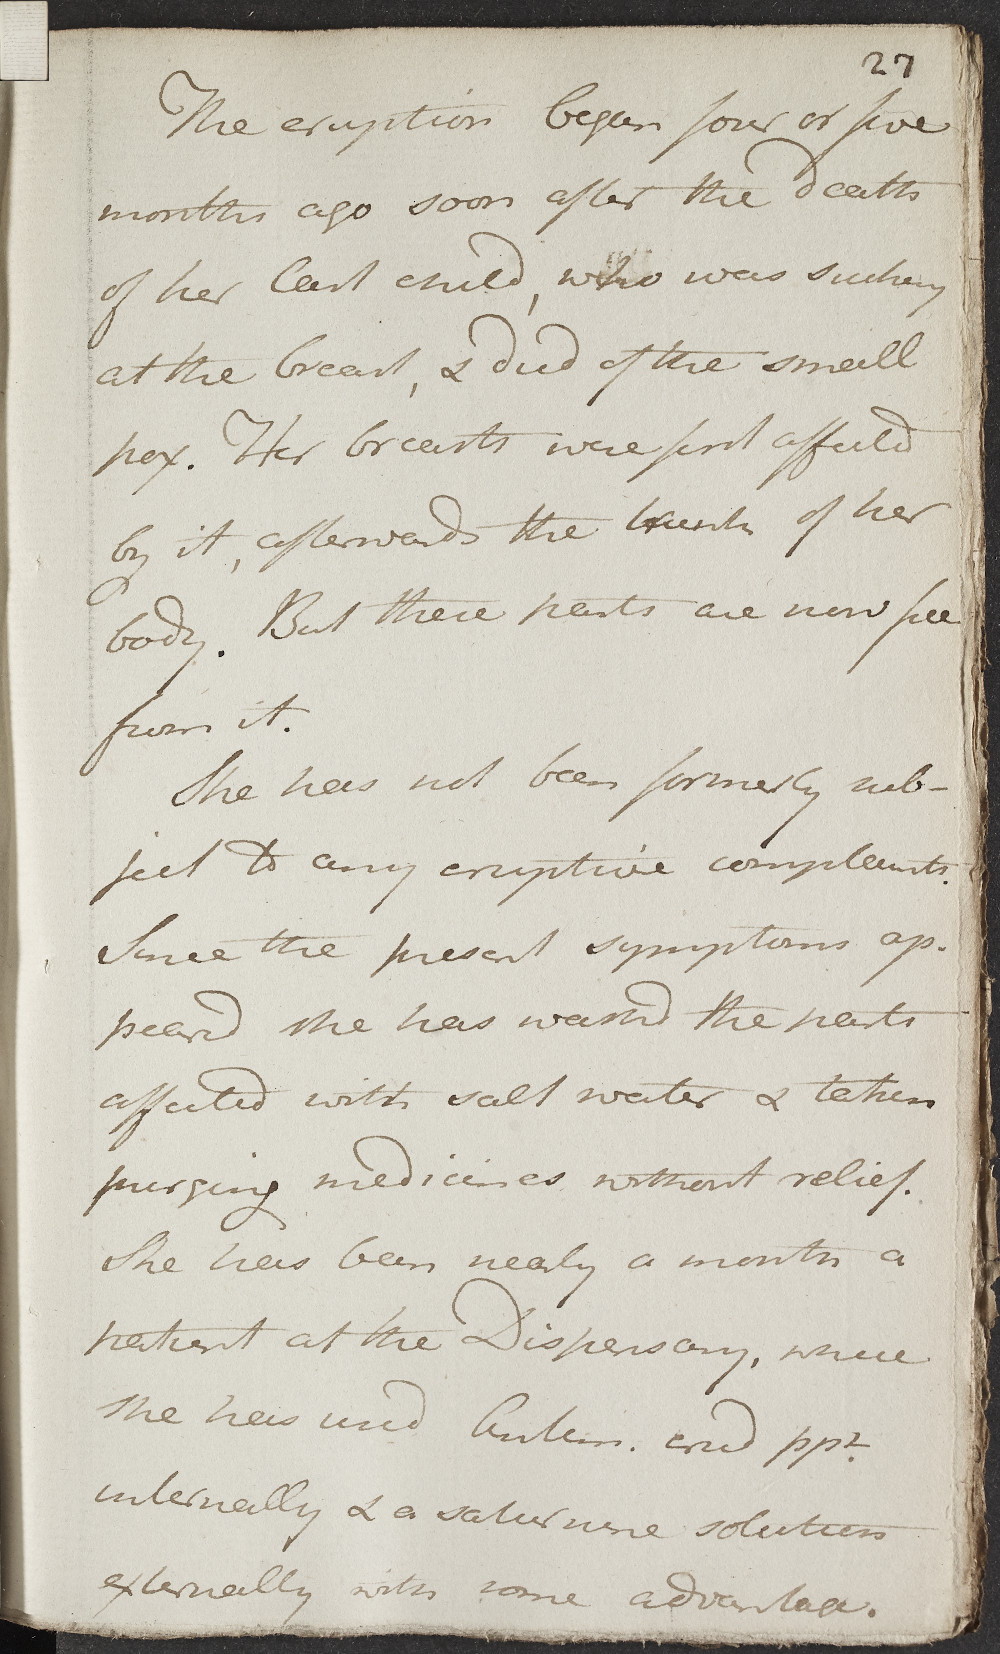 27
The eruption began four or five
months ago soon after the death
of her last child, who was sucking
at the breast, & died of the small
pox. Her breasts were first affected
by it, afterwards the trunk of her
body. But these parts are now free
from it.
She has not been formerly sub-
ject to any eruptive complaints.
Since the present symptoms ap-
peard she has washd the parts
affected with salt water & taken
purging medicines without relief.
She has been nearly a month a
patient at the Dispensary, where
she has used Antim. crud ppt.
internally & a saturnine solution
externally with some advantage.